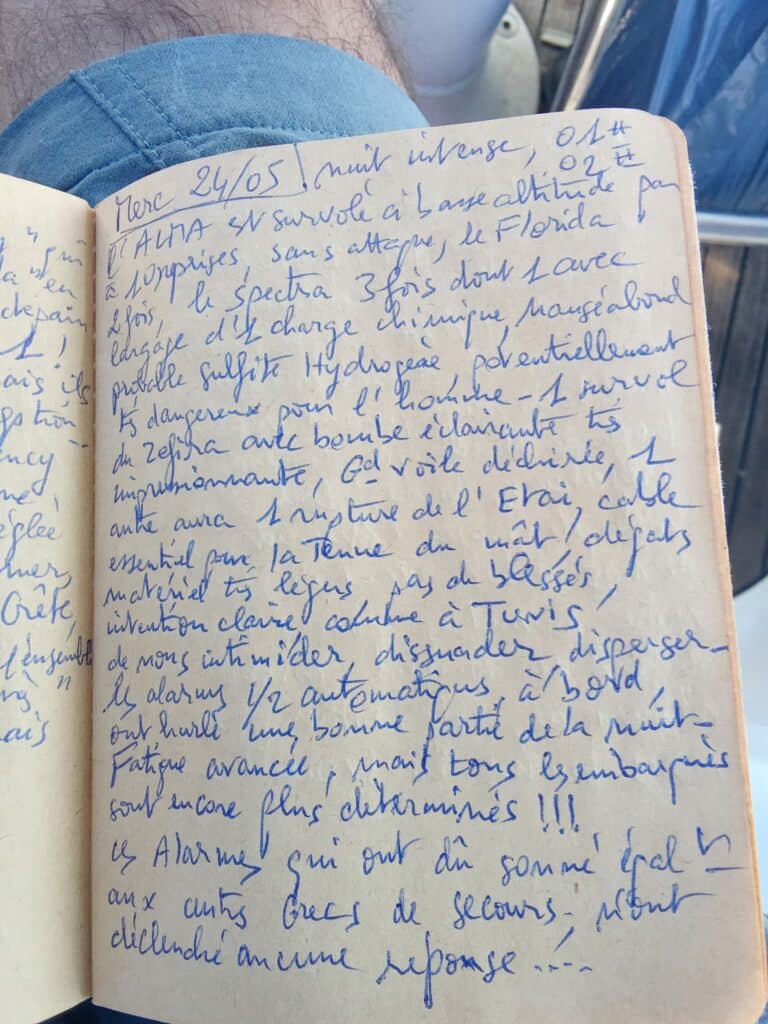 " qui
a "en
depain
1,
ais ils
gstion
ency
né,
églée
mer,
Crête,
l'ensemble
"
ais
Merc 24/05! nuit intense, 01H
02H
l'ALMA est survolé à basse altitude par
à 10 reprises, sans attaque, le Florida
2 fois, le spectra 3 fois dont 1 avec
largage d'1 charge chimique, nauséabond
probable sulfite Hydrogéné, potentiellement
ts dangereux pour l'homme - 1 survol
du Zefiro avec bombe éclairante ts
impressionnante, Gd voile déchirée, 1
autre aura 1 rupture de l'Etai, cable
essentiel pour la Tenue du mât, dégats
matériel ts légers pas de blessés,
intention claire comme à Tunis,
de nous intimider, dissuader disperser -
les alarmes 1/2 automatiques, à bord,
ont hurlé une bonne partie de la nuit -
Fatigue avancée, mais tous les embarqués
sont encore plus déterminés !!!
ces Alarmes qui ont dû sonné égalt
aux cntrs Grecs de secours - n'ont
déclenché aucune reponse .....